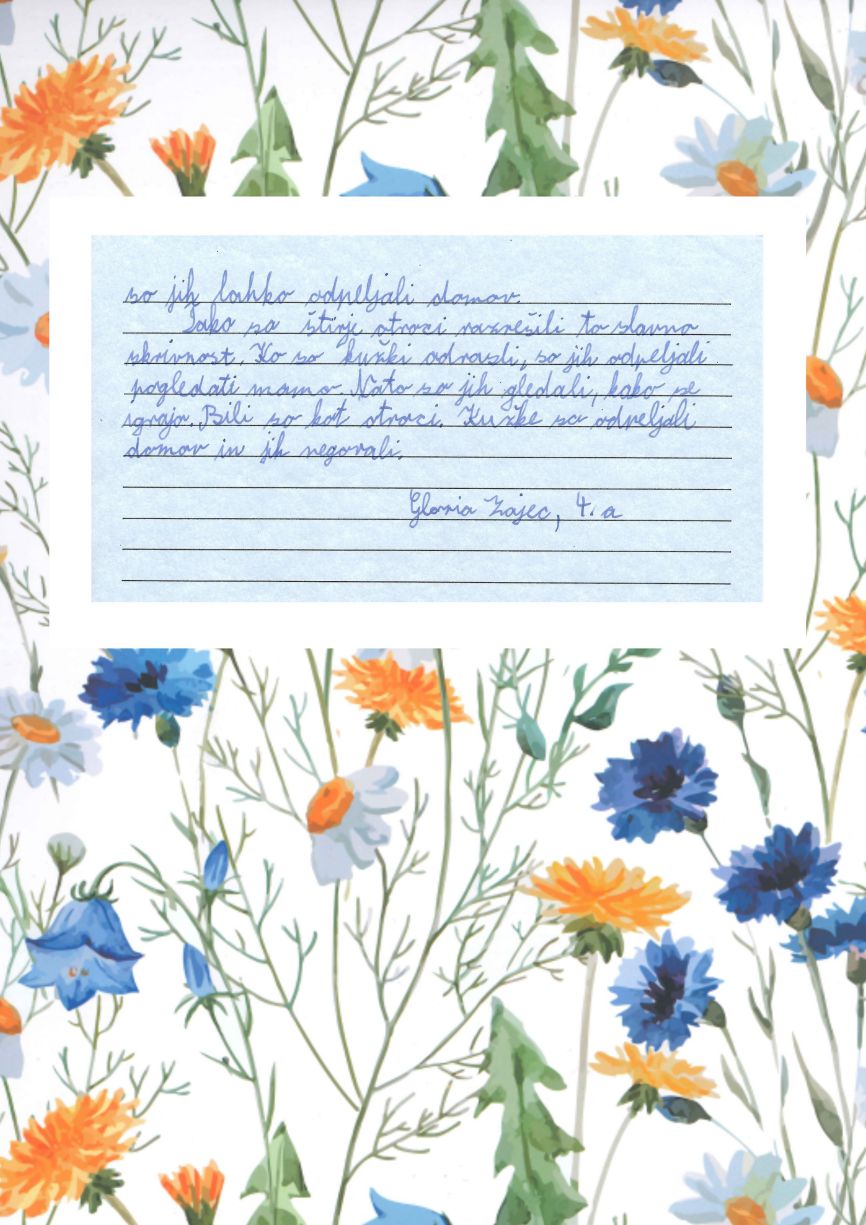 so jih lahko odpeljali domov.
Tako so štirje otroci razrešili to slavno
skrivnost. Ko so kužki odrasli, so jih odpeljali
pogledati mamo. Nato so jih gledali, kako se
igrajo. Bili so kot otroci. Kužke so odpeljali
domov in jih negovali.
Gloria Zajec, 4. a